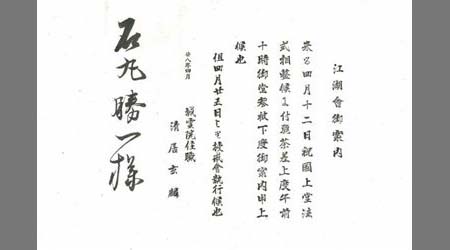 江湖會御案内
来る四月十二日祝國上堂法
式相整候に付麁茶差上度午前
十時御堂参被下度御案内申上
候也
但四月廿五日まで授戒會執行候也
廿八年四月
城雲院住職
清居玄麟
石丸勝一様